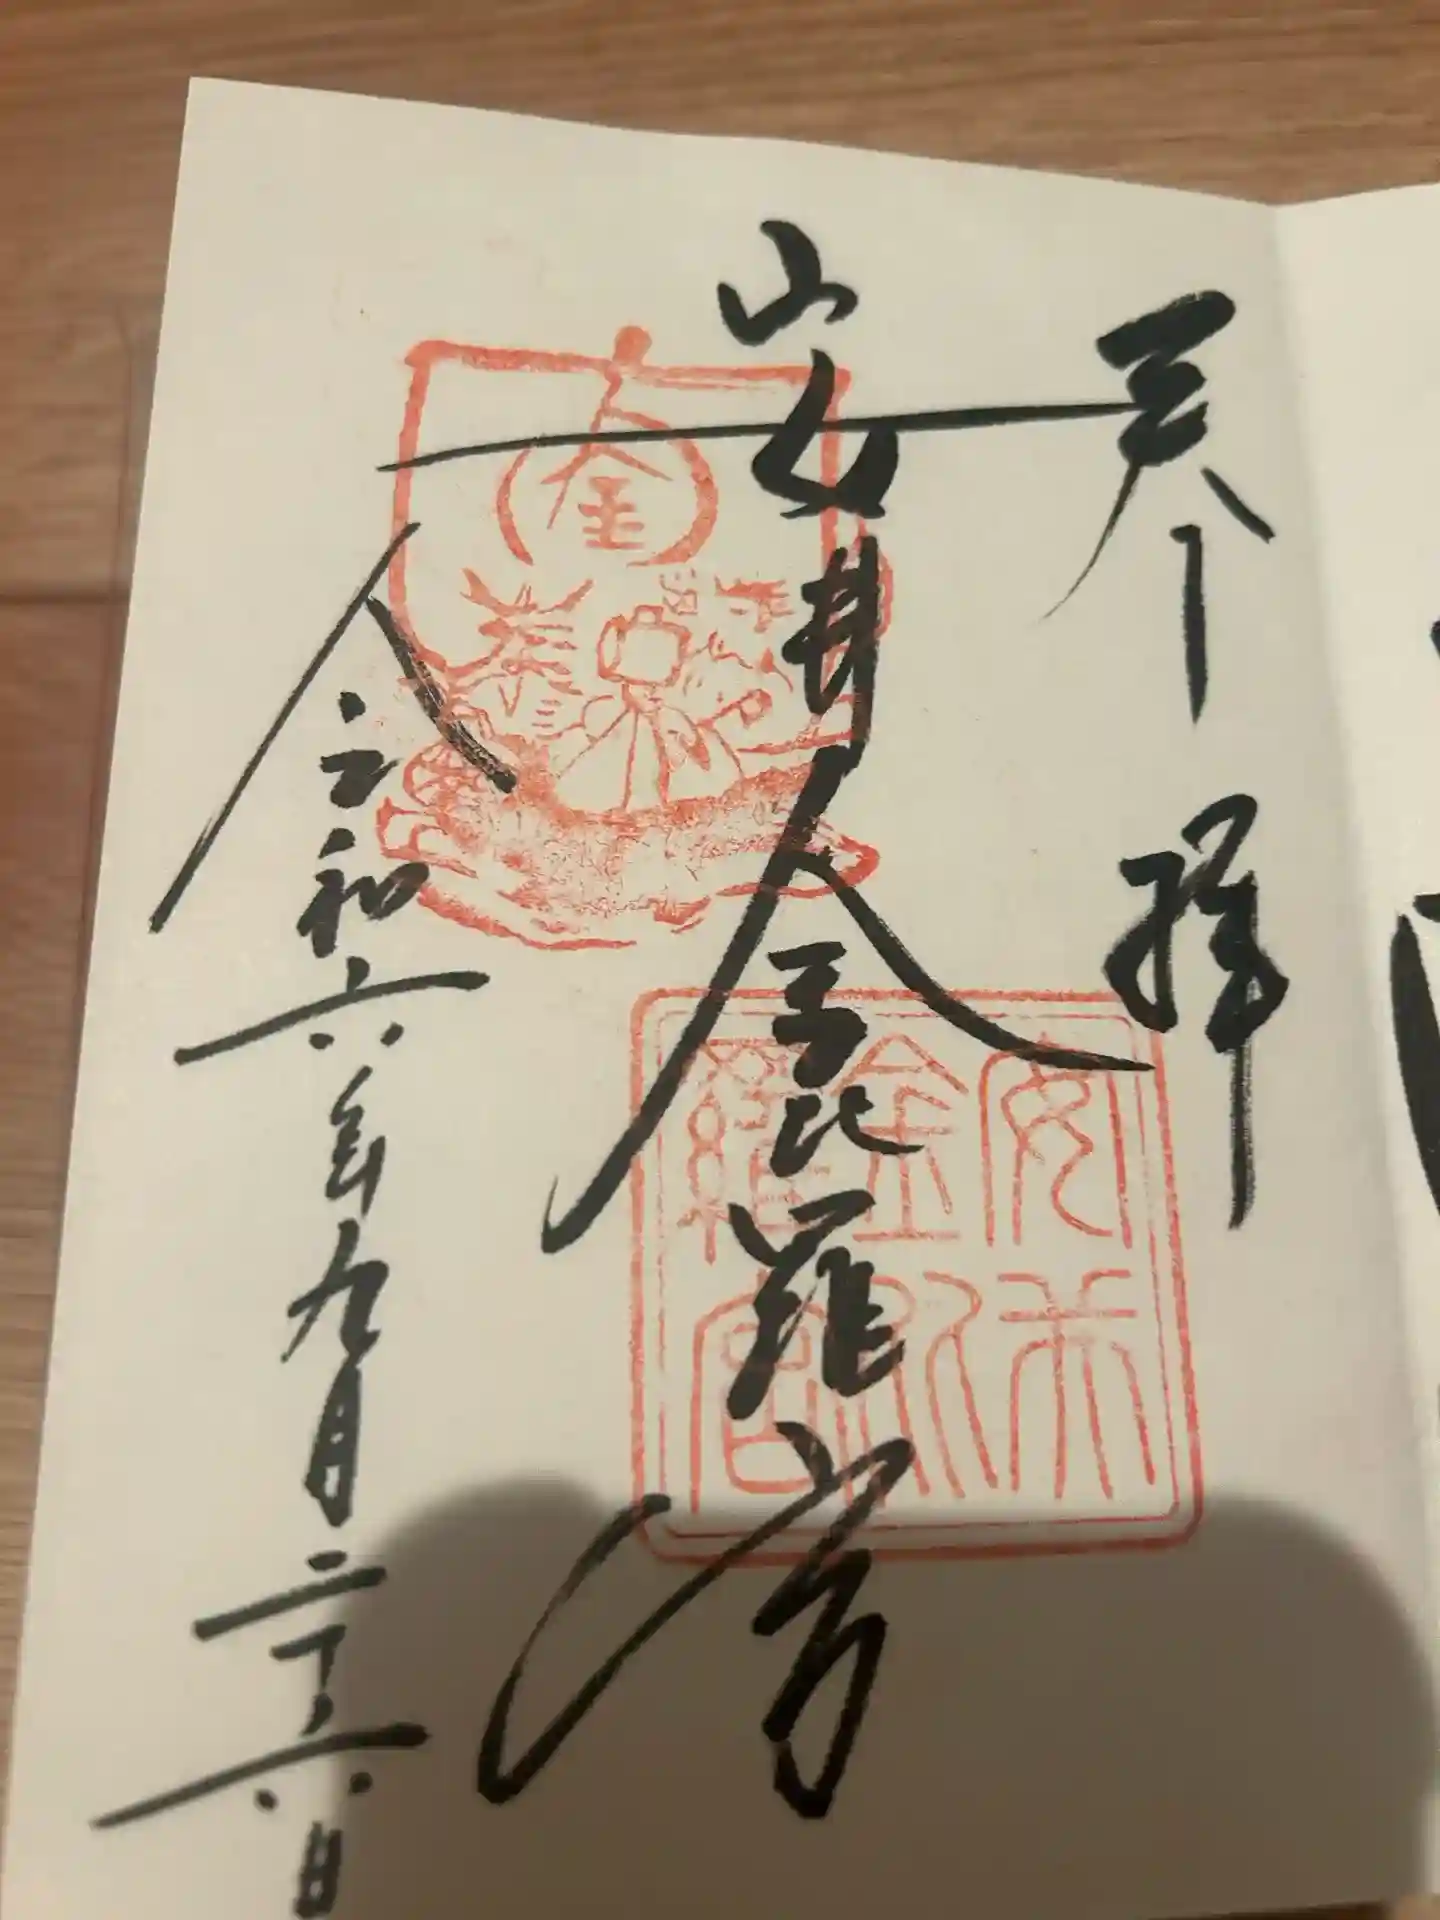 奉拝
安井金比羅宮
令和六年九月二十六日
安井金比羅宮
金